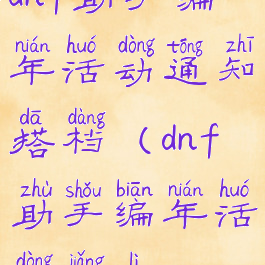 dnf助手编
nián huó dòng tōng zhī
年活动通知
dā dàng
搭档（dnf
zhù shǒu biān nián huó
助手编年活
dòng jiǎng lì